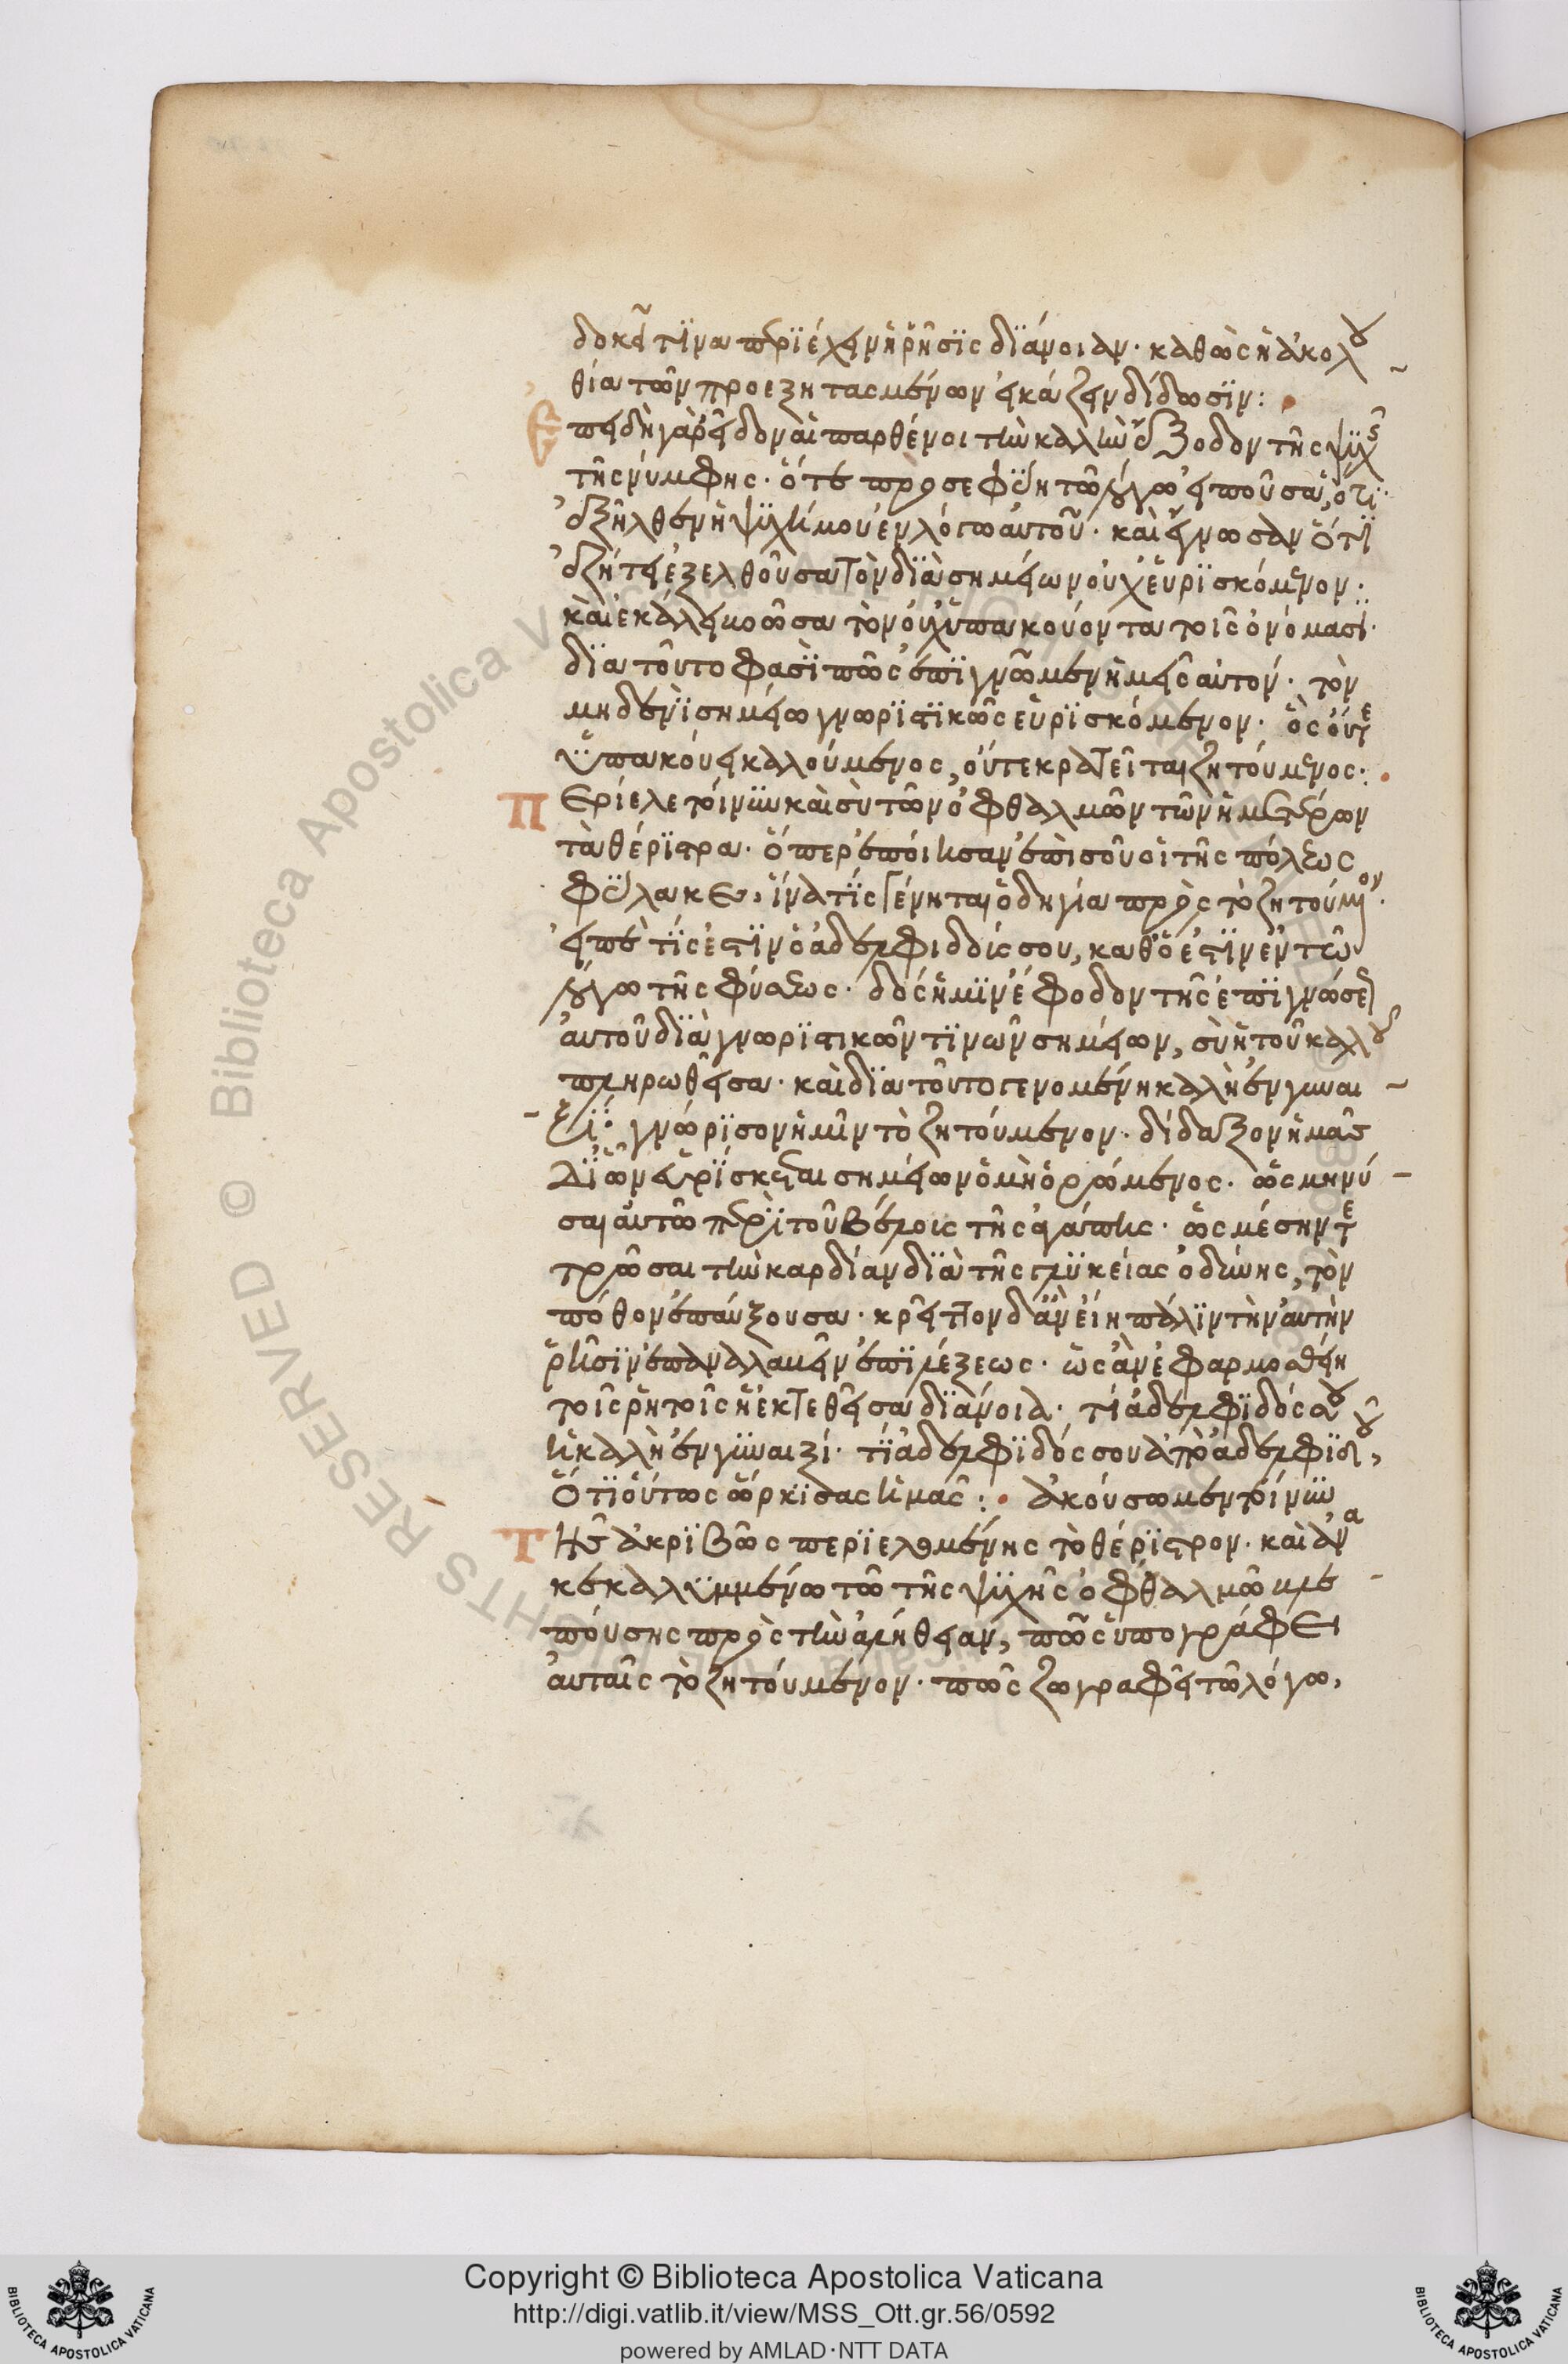 δοκεῖ τϊνα περϊέχειν ἡ ῥῆσϊς δϊάνοιαν· καθὼς ἡ ἀκολου
θία τῶν προεξητασμένων εἰκάζειν δίδωσϊν:
Ἐπειδὴ γὰρ εἶδον αἱ παρθένοι τὴν καλὴν ἔξοδον τῆς ψυχῆς
τῆς νύμφης· ὅτε προσεφύη τῶ λόγω εἰποῦσα, ὅτϊ·
ἐξῆλθεν ἡ ψϋχή μου ἐν λόγω αὐτοῦ· καὶ ἔγνωσαν ὅτϊ
ἐζήτει ἐξελθοῦσα τὸν δϊὰ σημείων οὐχ εὑρϊσκόμενον·
καὶ ἐκάλει βοῶσα τὸν οὐχ ὑπακούοντα τοῖς ὀνόμασϊ·
δϊα τοῦτο φασϊ πῶς ἐπϊγνῶμεν ἡμεῖς αὐτόν· τὸν
μηδενϊ σημείω γνωρϊστϊκῶς εὑρϊσκόμενον· ὃς οὔτε
ὑπακούει καλούμενος, οὔτε κρατεῖται ζητούμενος·
Περίελε τοίνϋν καὶ σὺ τῶν ὀφθαλμῶν τῶν ἡμετέρων
τὰ θέρϊστρα· ὅπερ ἐποίησαν ἐπὶ σοῦ οἱ τῆς πόλεως
φύλακες, ἵνα τϊς γένηται ὁδηγία πρὸς τὸ ζητούμενον·
εἰπὲ τίς ἐστϊν ὁ ἀδελφιδός σου, καθὅ ἐστϊν ἐν τῶ
λόγω τῆς φύσεως· δὸς ἡμϊν ἔφοδον τῆς ἐπϊγνώσεως
αὐτοῦ δϊὰ γνωρϊστικῶν τϊνῶν σημείων, σὺ ἡ τοῦ καλοῦ
πληρωθεῖσα· καὶ δϊα τοῦτο γενομένη καλὴ ἐν γυναι
ξϊ· γνώρϊσον ἡμῖν τὸ ζητούμενον· δίδαξον ἡμᾶς
δϊ ὧν εὑρϊσκεται σημείων ὁ μὴ ὁρώμενος· ὡς μηνύ
σαι αὐτῶ περὶ τοῦ βέλους τῆς ἀγάπης· ὡς μέσην τε
τρῶσαι τὴν καρδίαν δϊὰ τῆς γλϋκείας ὀδύνης, τὸν
πόθον ἐπαύξουσα· κρεῖττον δ' ἂν εἴη πάλϊν τὴν αὐτὴν
ῥῆσϊν ἐπαναλαβεῖν ἐπϊ λέξεως· ὡς ἂν ἐφαρμοσθείη
τοῖς ῥητοῖς ἡ ἐκτεθεῖσα δϊάνοια· τί ἀδελφϊδός σου
ἡ καλὴ ἐν γϋναιξί· τϊ ἀδελφϊδός σου ἀπὸ ἀδελφϊδοῦ,
ὅτϊ οὕτως ὥρκϊσας ἡμᾶς:· ἀκούσωμεν τοίνϋν
Τῆς ἀκρϊβῶς περϊελομένης τὸ θέρϊστρον· καὶ ἀνα
κεκαλϋμμένω τῶ τῆς ψϋχῆς ὀφθαλμῶ βλε
πούσης πρὸς τὴν ἀλήθειαν, πῶς ὑπογράφει
αὐταῖς τὸ ζητούμενον· πῶς ζωγραφεῖ τῶ λόγω,
Copyright © Biblioteca Apostolica Vaticana
http://digi.vatlib.it/view/MSS_Ott.gr.56/0592
powered by AMLAD·NTT DATA
BIBLIOTECA APOSTOLICA VATICANA
BIBLIOTECA APOSTOLICA VATICANA